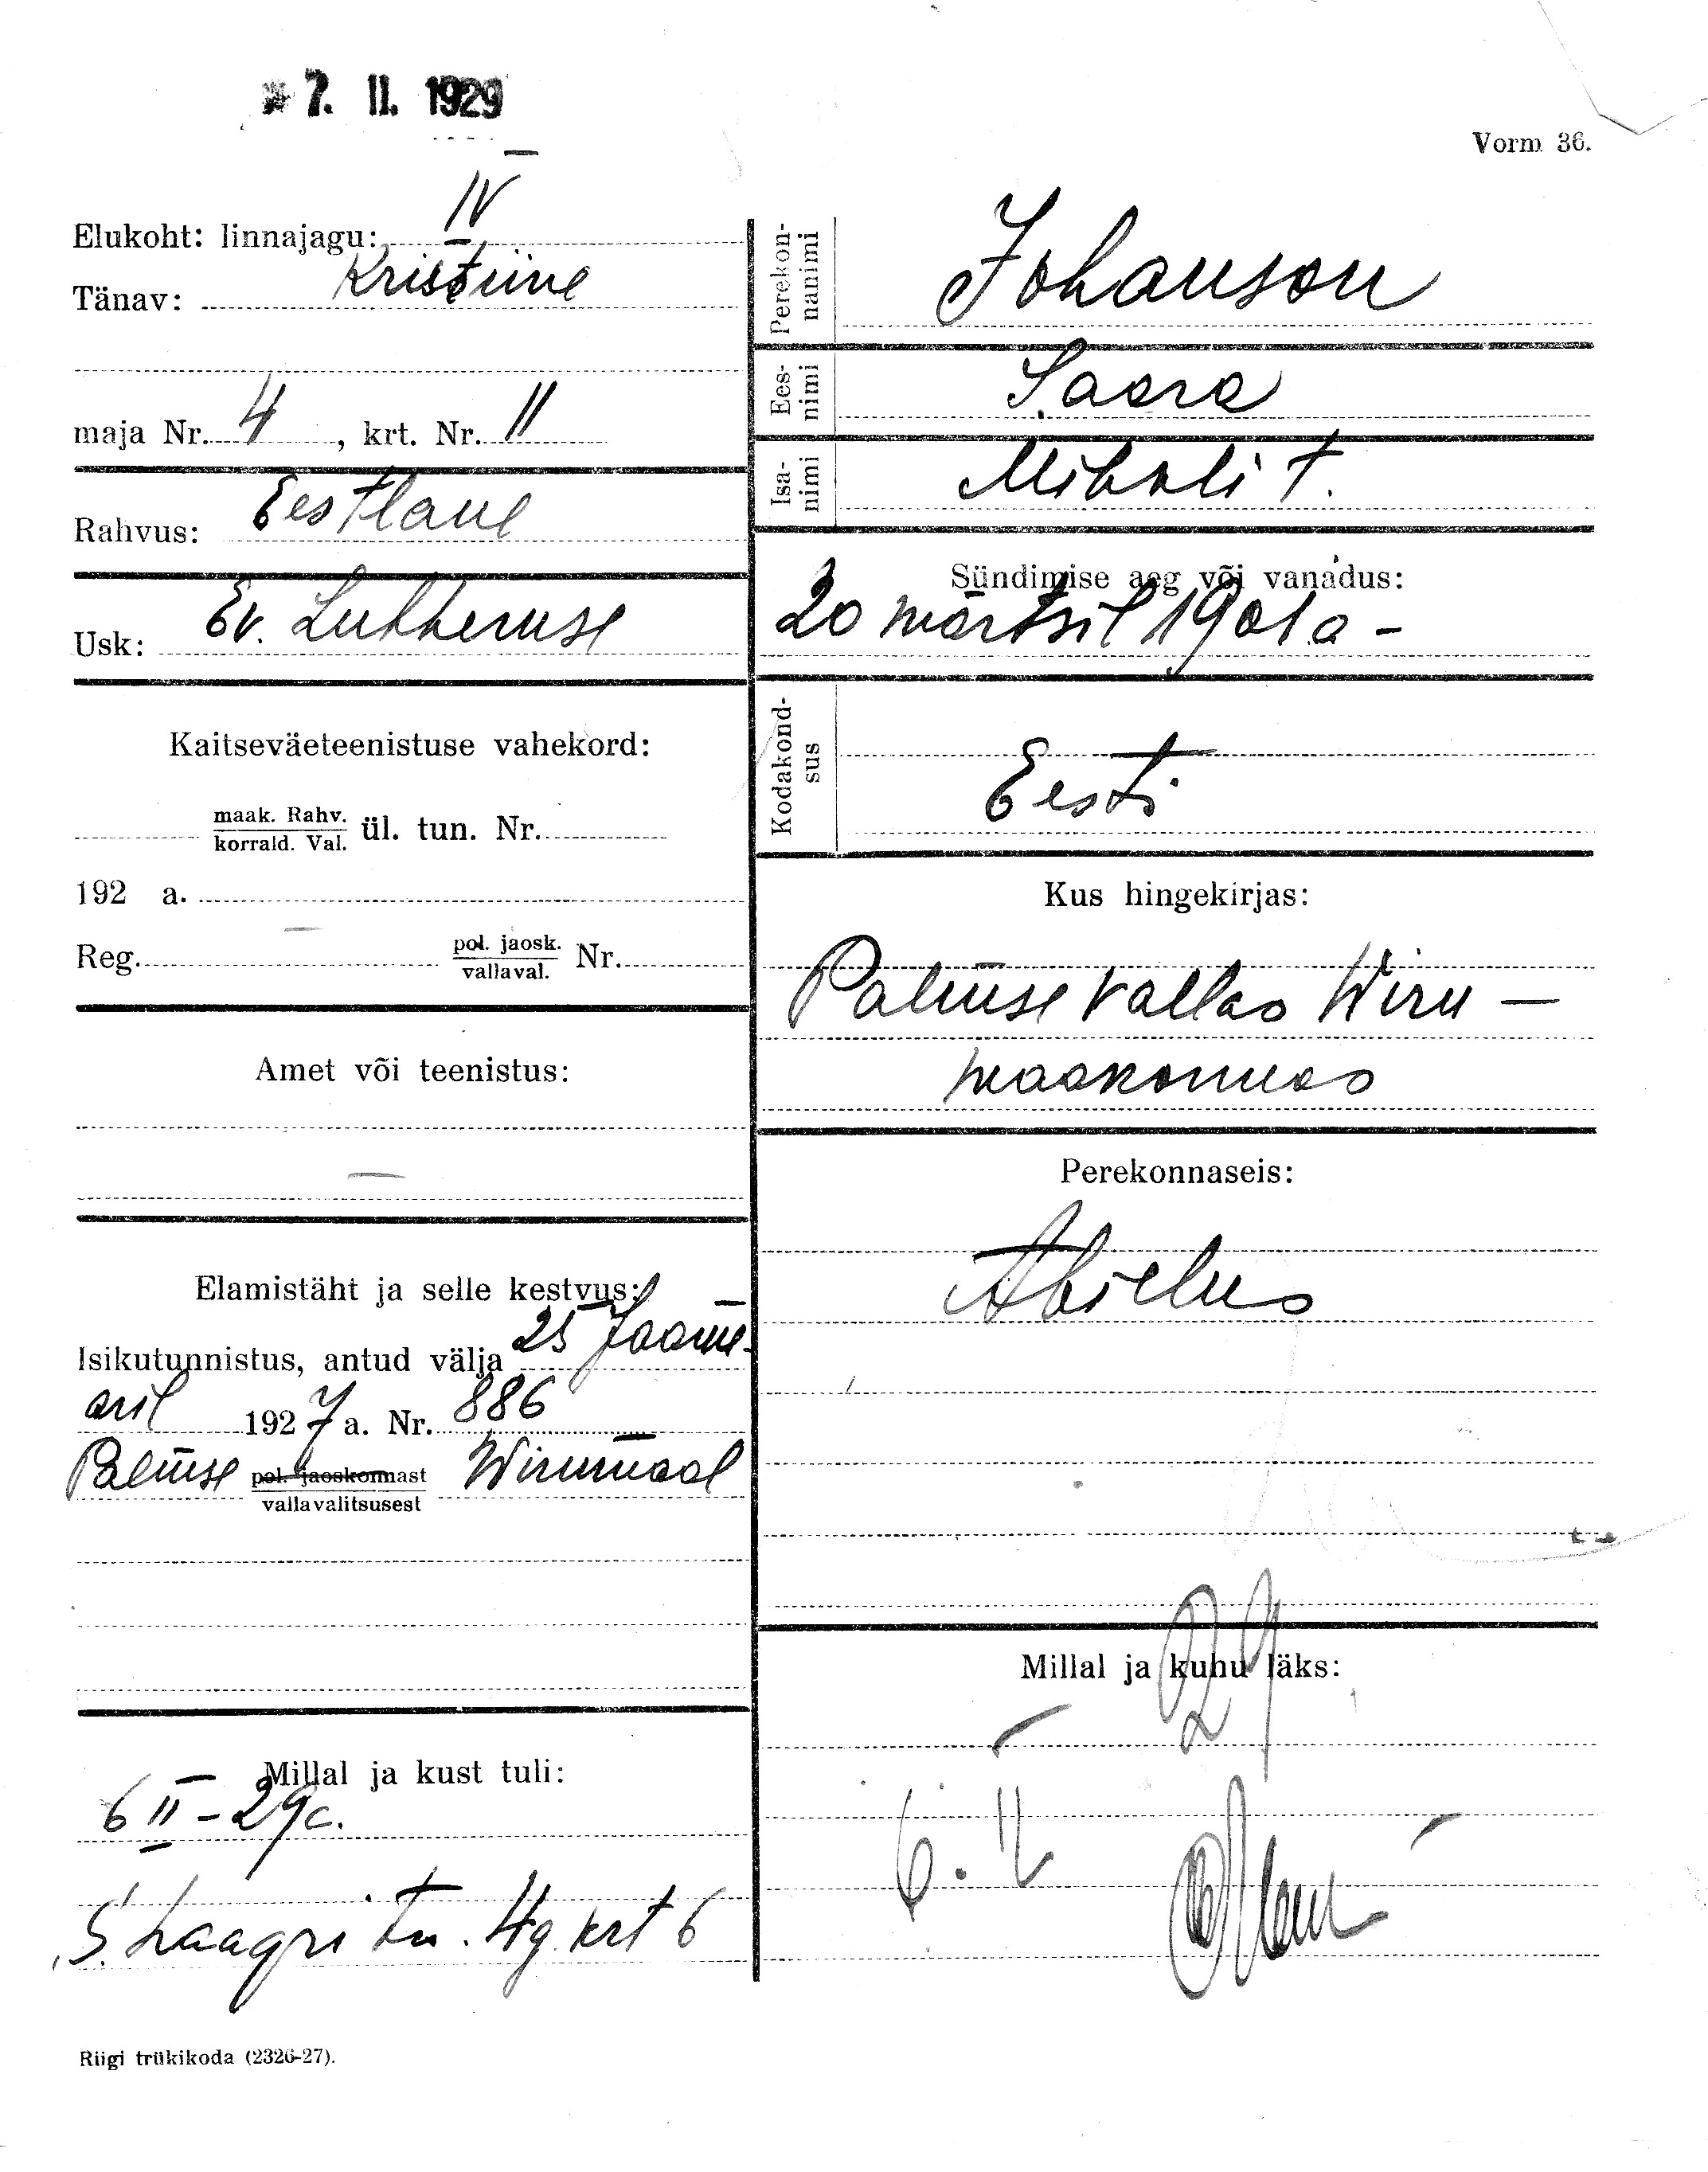 * 7. II. 1929
Vorm 36.
Elukoht: linnajagu: IV
Tänav: Kristiine
maja Nr. 4, krt. Nr. 11
Rahvus: Eestlane
Usk: Ev. Lutheruse
Kaitseväeteenistuse vahekord:
maak. Rahv.
korrald. Val. ül. tun. Nr.
192 a.
Reg. — pol. jaosk.
vallaval. Nr.
Amet või teenistus:
—
Elamistäht ja selle kestvus:
Isikutunnistus, antud välja 25 Jaanu-
aril 1927 a. Nr. 886
Palmse pol. jaoskonnast Wirumaal
vallavalitsusest
Millal ja kust tuli:
6 II - 29 a.
S. Laagri tn. 4g. krt 6
Perekon-
nanimi Johanson
Ees-
nimi Saara
Isa-
nimi Mihkli t.
Sündimise aeg või vanadus:
20 märtsil 1901 a -
Kodakond-
sus Eesti
Kus hingekirjas:
Palmse vallas Wiru —
maakonnas
Perekonnaseis:
Abielus
Millal ja kuhu läks:
29
6. II
Riigi trükikoda (2326-27).